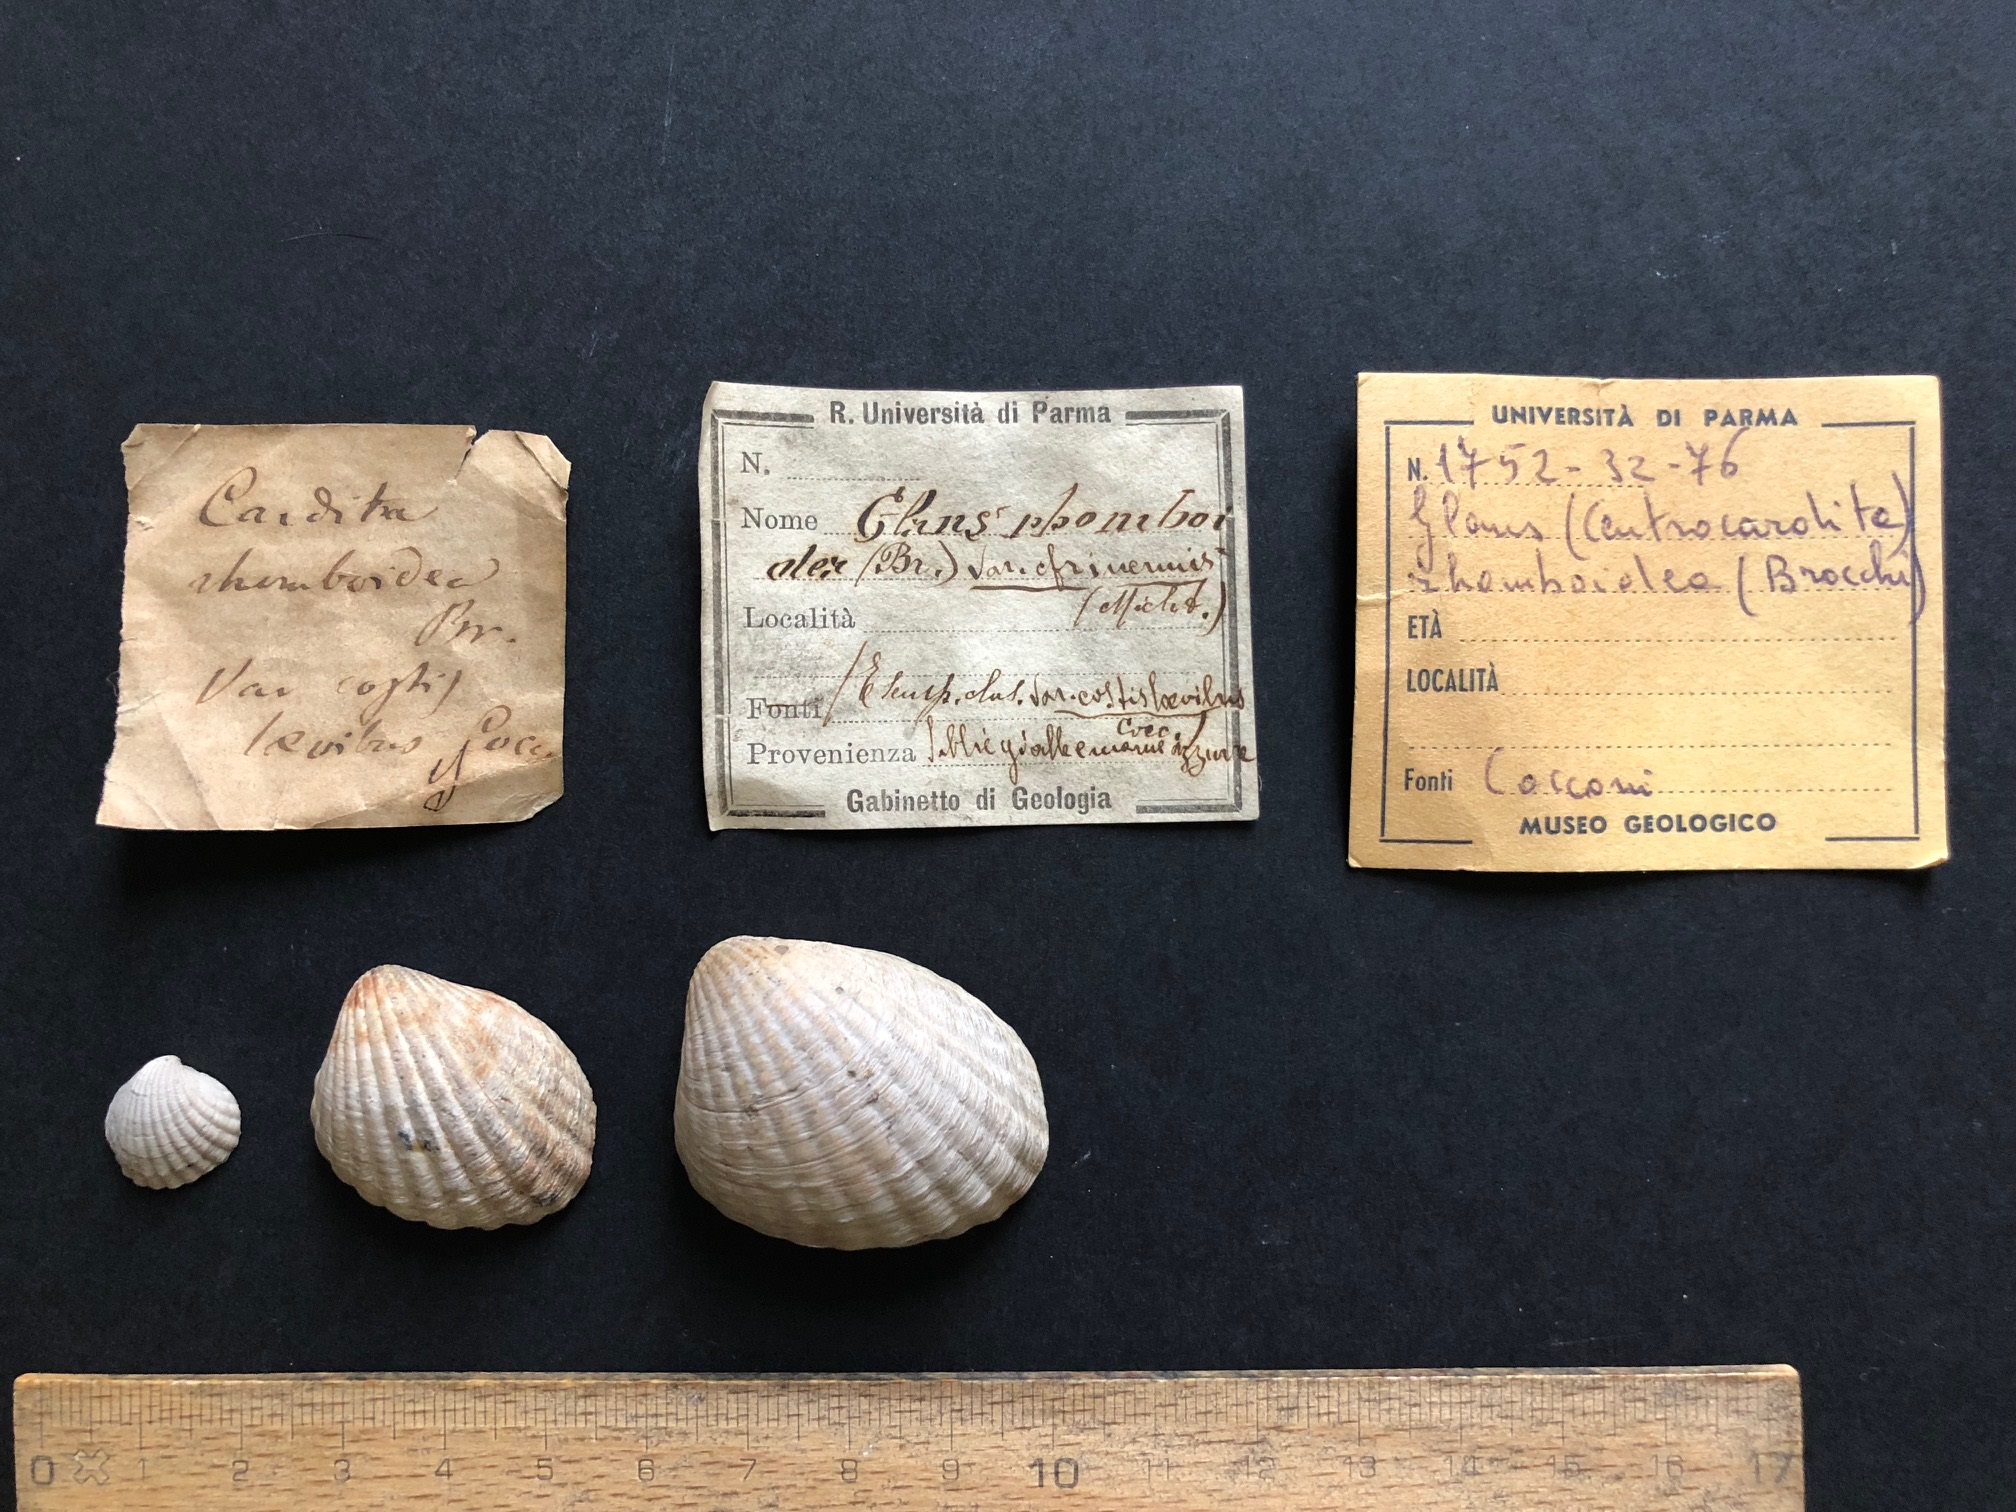 Cardita
rhomboidea
Br.
Var costis
lævibus Cocc
R. Università di Parma
N.
Nome Glans rhomboi
dea (Br.) var.
Località (Micht.)
var. costis lævibus
Fonti
Cocc.
Provenienza Sabbie gialle e marne azzurre
Gabinetto di Geologia
UNIVERSITÀ DI PARMA
N. 1752-32-76
Glans (Centrocardita)
rhomboidea (Brocchi)
ETÀ
LOCALITÀ
Fonti Cocconi
MUSEO GEOLOGICO
0 1 2 3 4 5 6 7 8 9 10 11 12 13 14 15 16 17